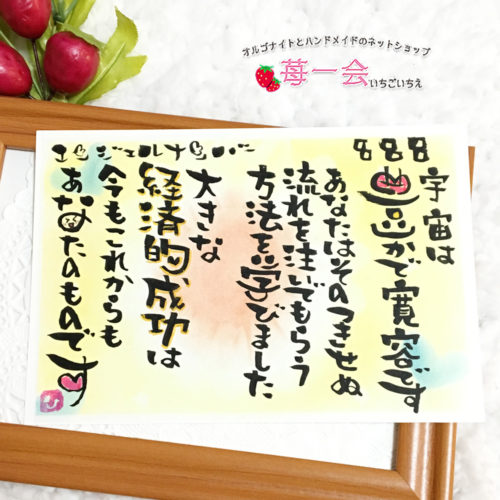 オルゴナイトとハンドメイドのネットショップ
苺一会いちごいちえ
エンジェルナンバー
888
宇宙は
豊かで寛容です
あなたはそのつきせぬ
流れを注いでもらう
方法を学びました
大きな
経済的成功は
今もこれからも
あなたのものです